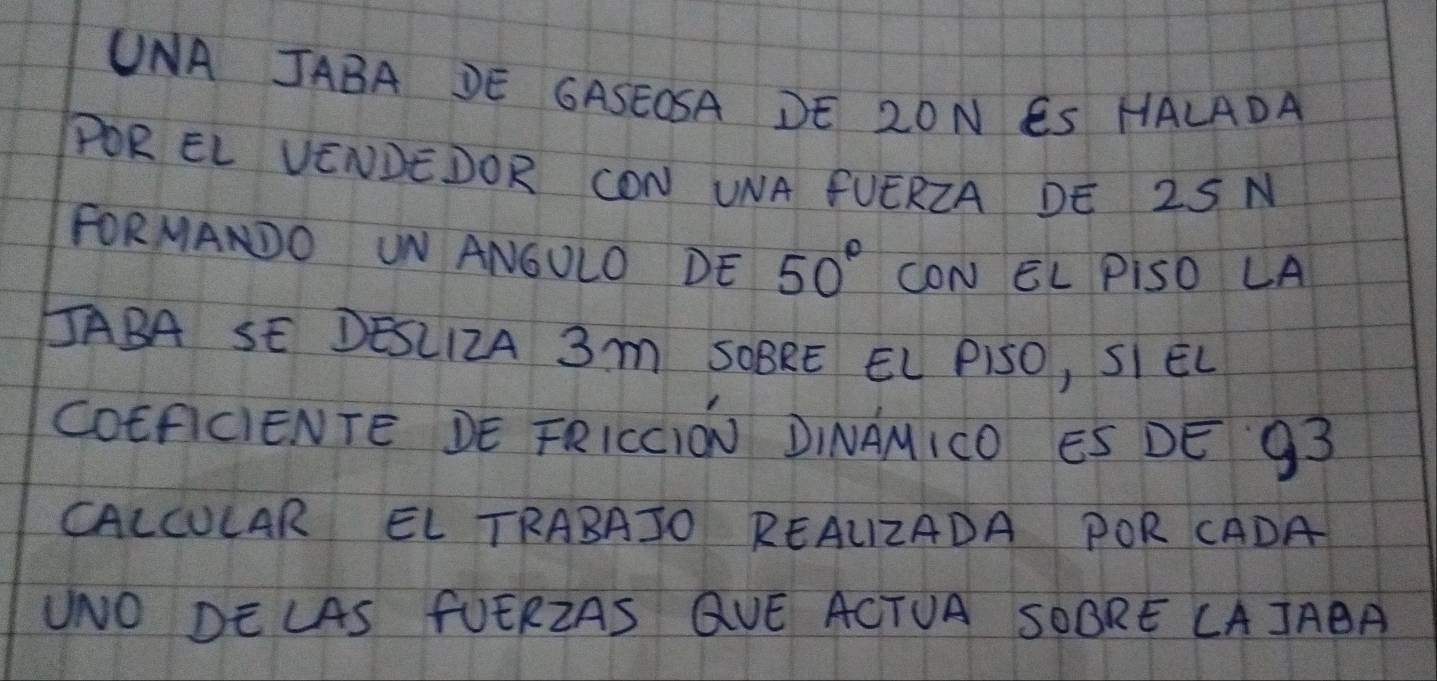 UNA JABA DE GASEOSA DE 20N ES HALADA
POR EL VENDEDOR CON UNA FUERZA DE 25 N
FORMANDO UN ANGULO DE 50° CON EL PISO LA
JABA SE DESLIZA 3m SOBRE EL PISO, SI EL
COEFICIENTE DE FRICCIÓN DINÁMICO ES DE 0,3
CALCULAR EL TRABAJO REALIZADA POR CADA
UNO DE LAS FUERZAS QUE ACTUA SOBRE LA JABA